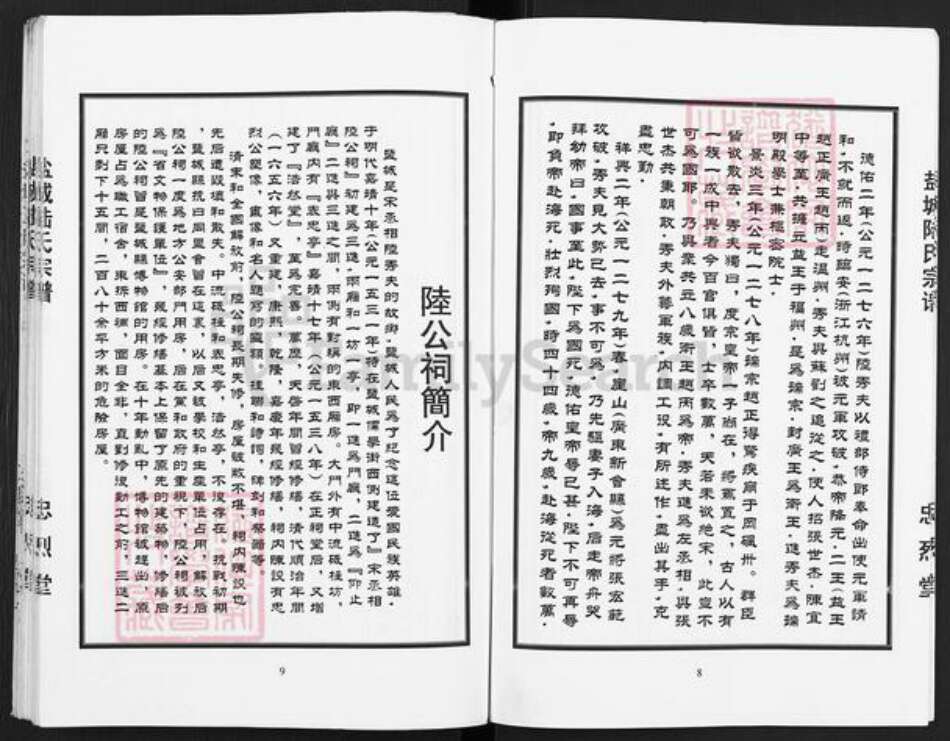 盐城陆氏宗谱
忠烈堂
德佑二年(公元一二七六年)陸秀夫以禮部侍郎奉命出使元軍請
和，不就而返。時臨安(浙江杭州)被元軍攻破，恭帝降元。二王(益王
趙正廣王趙昺)走溫州，秀夫與蘇劉之追從之，使人招張世杰，陳宜
中等至，共擁立益王于福州，是爲端宗，封廣王爲衛王，進秀夫爲端
明殿學士兼樞密院士。
景炎三年(公元一二七八年)端宗趙正得驚疾崩于岡碙卅。群臣
皆欲散去，秀夫獨曰，度宗皇帝一子尚在，將焉置之，古人以有
一族一成中興者，今百官俱皆，士卒數萬，天若未欲絶宋，此豈不
可爲國耶。乃與衆共立八歲衛王趙昺爲帝，秀夫進爲左丞相，與張
世杰共秉朝政，秀夫外籌軍旅，内調工役，有所述作，盡出其手，克
盡忠勤。
祥興二年(公元一二七九年)春，崖山(廣東新會縣)爲元將張宏範
攻破，秀夫見大勢已去，事不可爲，乃先驅妻子入海，后走帝舟哭
拜幼帝曰，國事至此，陛下爲國死，德佑皇帝辱已甚，陛下不可再辱
，即負帝赴海死，壯烈殉國，時四十四歲，帝九歲，赴海從死者數萬。
8
陸公祠簡介
鹽城是宋丞相陸秀夫的故鄉，鹽城人民爲了紀念這位愛國民族英雄，
于明代嘉靖十年(公元一五三一年)特在鹽城儒學街西側建造了『宋丞相
陸公祠』初建爲三進，兩廂和一坊一亭，即一進爲門廳，二進爲『仰止
廳』二進與三進之間，兩側有對稱的東西廂房。大門外有中流砥柱坊，
門廳内有『表忠亭』嘉靖十七年(公元一五三八年)在正祠堂后，又增
建了『浩然堂』，至爲完善。萬歷，天啓年間曾經修繕，清代順治年間
(一六五六年)又重建，康熙，乾隆，嘉慶年幾經修繕，祠内陳設有忠
烈公塑像，畫像和名人題寫的匾額，桂聯和詩詞，碑刻和祭器等。
清末和全國解放前，陸公祠長期失修，房屋破敗不堪，祠内陳設也
先后遭毁壞和散失。中流砥柱和表忠亭，浩然亭，不復存在，抗戰初期
，鹽城縣抗日同盟會曾在這裏，以后又被學校和生産單位占用，解放后
陸公祠一度爲地方公安部門用房，后在黨和政府的重視下，陸公祠被列
爲『省文物保護單位』，幾經修繕基本上保留了原先的建築物，修繕后
的陸公祠曾是鹽城縣博物館的用房。在十年動亂中，博物館被趕出，原
房屋占爲職工宿舍，東拆西補，面目全非，直到修復動工之前，三進二
廂只剩下十五間，二百八十余平方米的危險房屋。
9
盐城陆氏宗譜
忠烈堂
FamilySearch